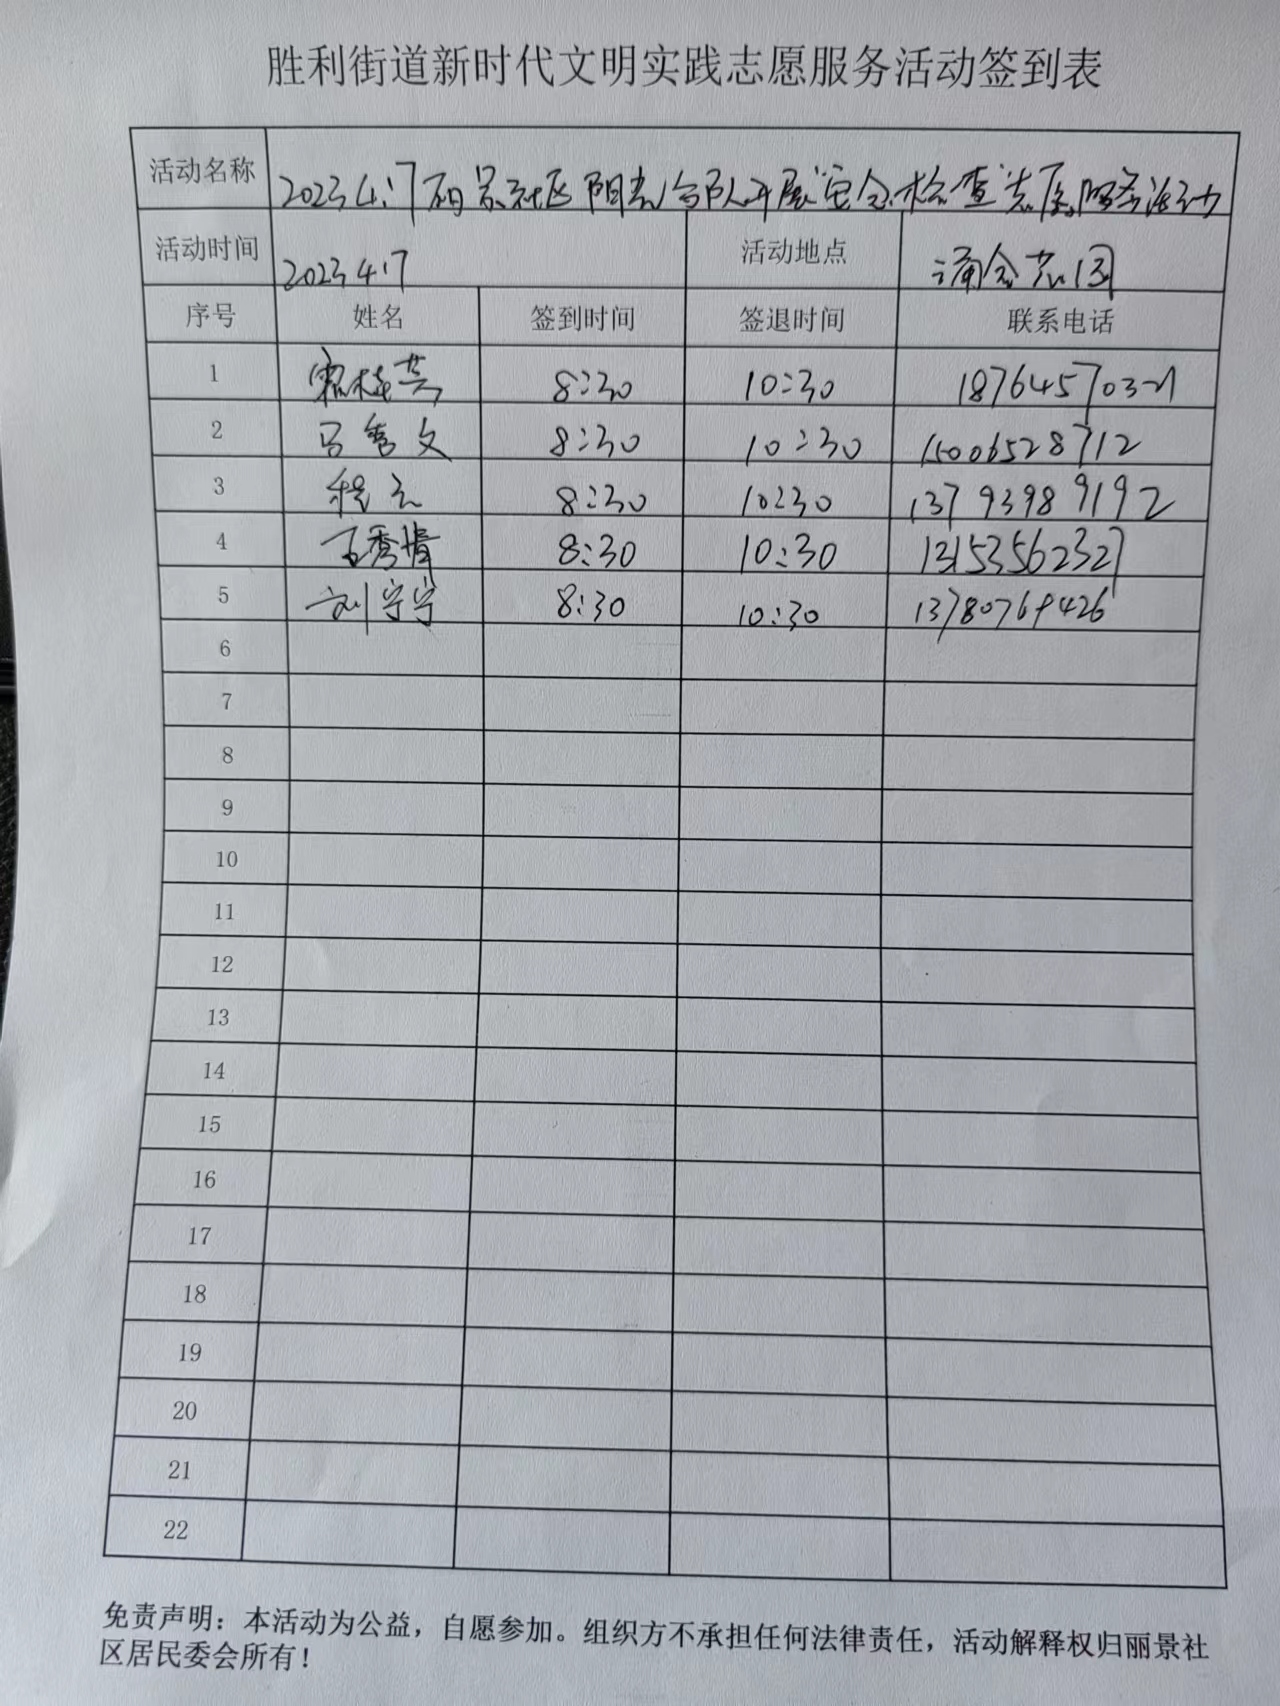 胜利街道新时代文明实践志愿服务活动签到表
活动名称 2023 4.17 丽景社区阳光分队开展"安全检查"志愿服务活动
活动时间 2023 4.17 活动地点 涌金花园
序号 姓名 签到时间 签退时间 联系电话
1 8:30 10:30
2 马秀文 8:30 10:30 15006528712
3 程云 8:30 10:30 13793989192
4 王秀清 8:30 10:30 13153562327
5 刘宁宁 8:30 10:30 13780769426
6
7
8
9
10
11
12
13
14
15
16
17
18
19
20
21
22
免责声明：本活动为公益，自愿参加。组织方不承担任何法律责任，活动解释权归丽景社
区居民委会所有！